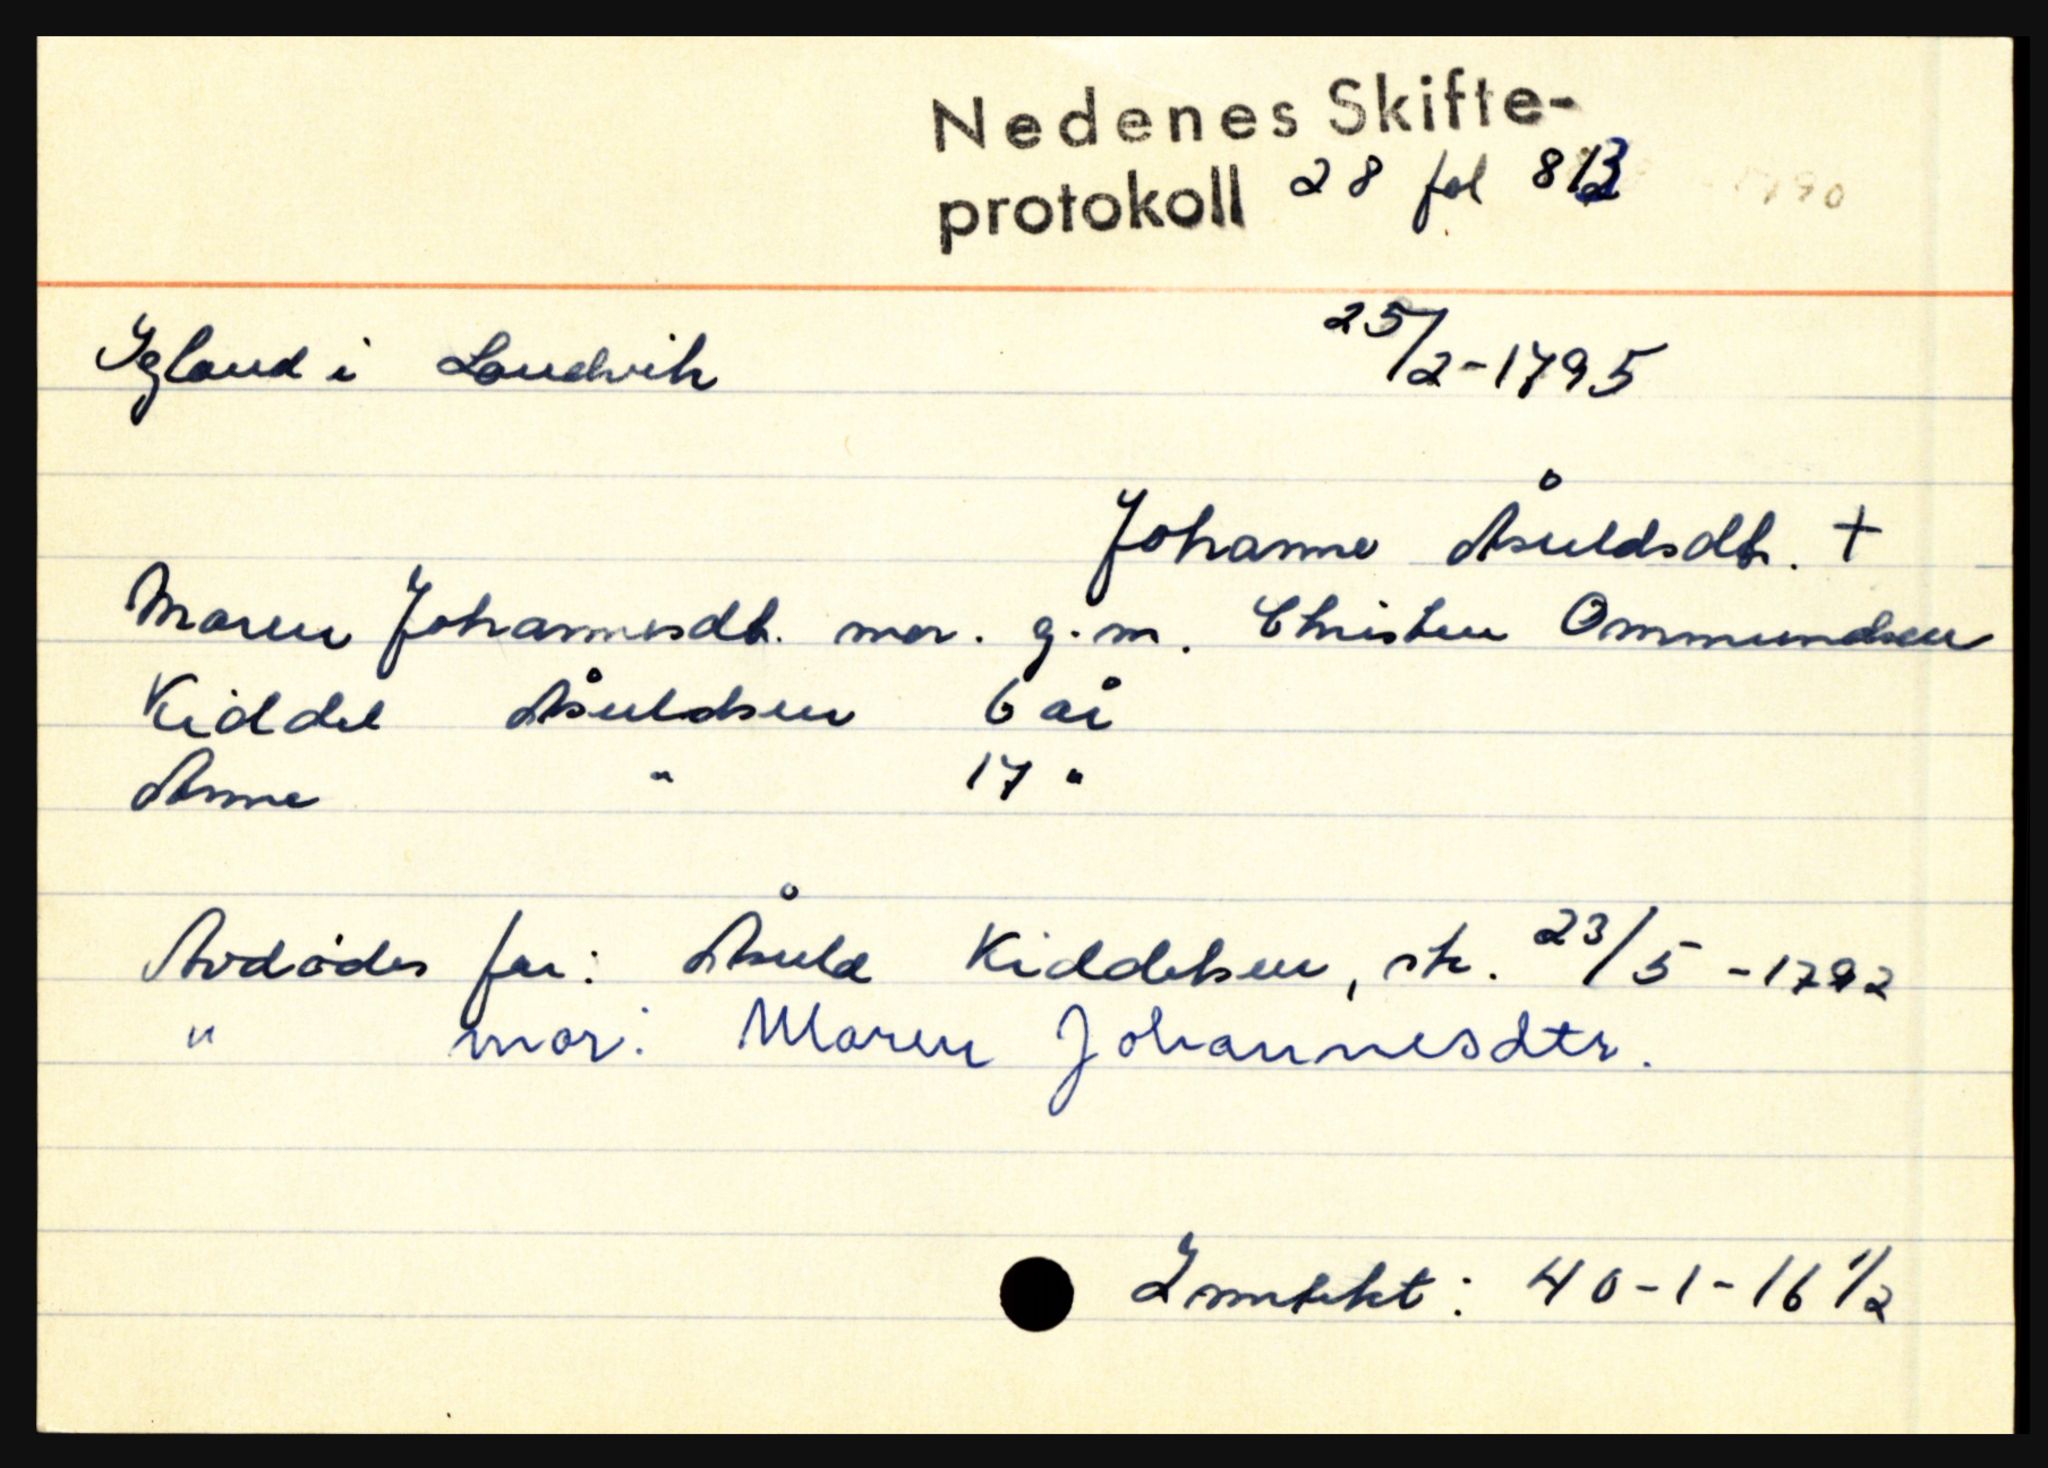 Nedenes Skifte-
protokoll 28 fol 812
Igland i Landvik 25/2-1795
Johanne Åsuldsdtr. +
Maren Johannesdtr. mor. g.m. Christen Ommundsen
Kiddel Åsuldsen 6 år
Anne " 17 "
Avdødes far: Åsuld Kiddelsen, sk. 23/5 - 1792
" mor: Maren Johannesdtr.
Inntekt: 40-1-16 1/2